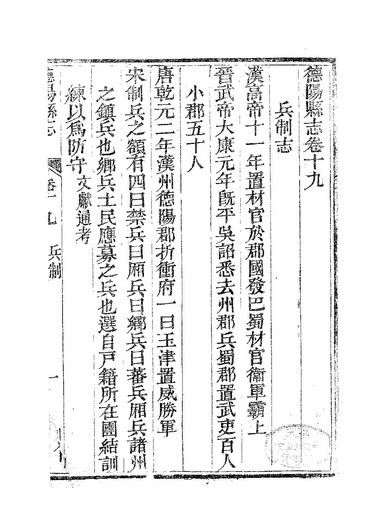 德陽縣志卷十九
兵制志
漢高帝十一年置材官於郡國發巴蜀材官衞軍霸上
晉武帝大康元年旣平吳詔悉去州郡兵蜀郡置武吏百人
小郡五十人
唐乾元二年漢州德陽郡折衝府一曰玉津置威勝軍
宋制兵之額有四曰禁兵曰厢兵曰鄉兵曰蕃兵厢兵諸州
之鎮兵也鄉兵土民應募之兵也選自戶籍所在團結訓
練以爲防守文獻通考
德陽縣志 卷十九 兵制 一